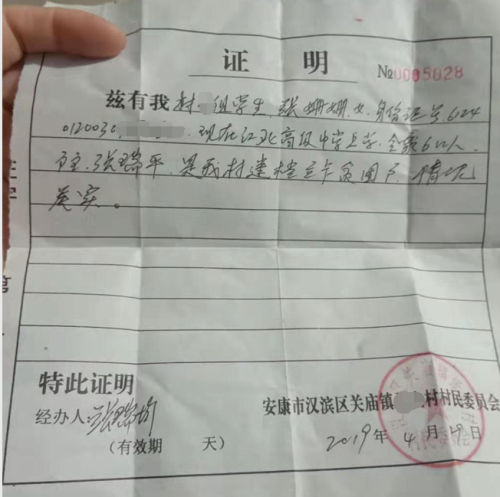 证 明
№0005028
兹有我村 组学生 张姗姗,女,身份证号624
012003 现在江北高级中学上学,全家6口人,
户主,张 平,是我村建档立卡贫困户,情况
属实。
特此证明
经办人:
安康市汉滨区关庙镇 村村民委员会
(有效期 天)
2019年4月29日